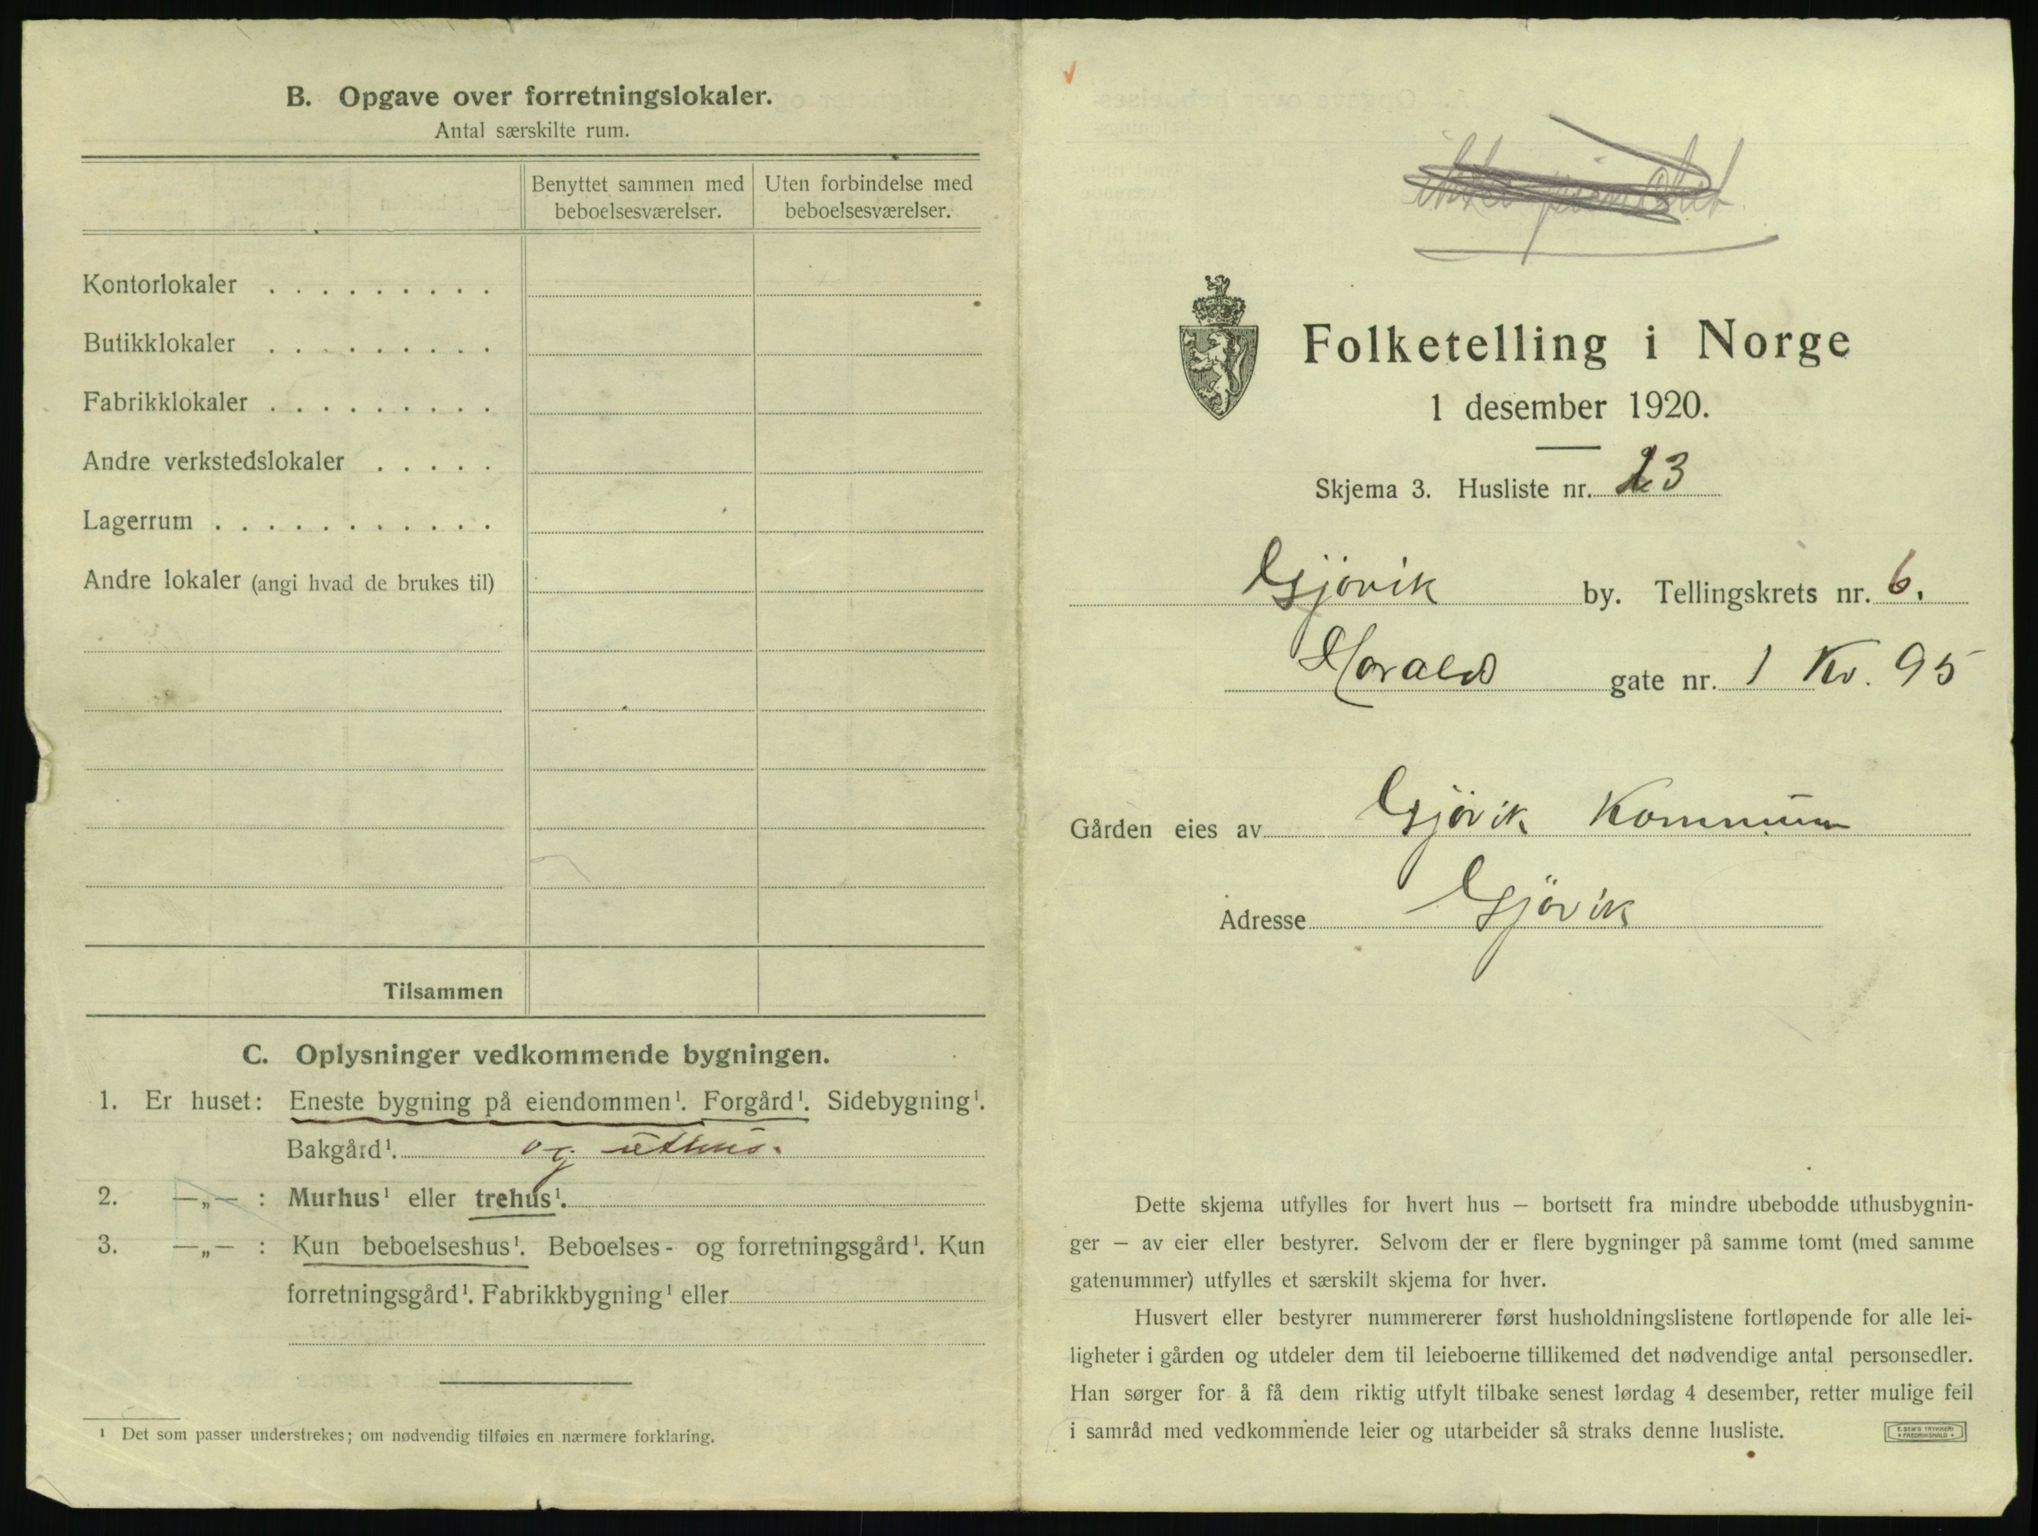 B. Opgave over forretningslokaler.
Antal særskilte rum.
Benyttet sammen med beboelsesværelser.
Uten forbindelse med beboelsesværelser.
Kontorlokaler . . . . . . . . .
Butikklokaler . . . . . . . . .
Fabrikklokaler . . . . . . . . .
Andre verkstedslokaler . . . . .
Lagerrum . . . . . . . . . . .
Andre lokaler (angi hvad de brukes til)
Tilsammen
C. Oplysninger vedkommende bygningen.
1. Er huset: Eneste bygning på eiendommen¹. Forgård¹. Sidebygning¹.
Bakgård¹. og uthus.
2. —„— : Murhus¹ eller trehus¹.
3. —„— : Kun beboelseshus¹. Beboelses- og forretningsgård¹. Kun
forretningsgård¹. Fabrikkbygning¹ eller
¹ Det som passer understrekes; om nødvendig tilføies en nærmere forklaring.
Folketelling i Norge
1 desember 1920.
Skjema 3. Husliste nr. 23
Gjøvik by. Tellingskrets nr. 6.
Harald gate nr. 1 Kv. 95
Gården eies av Gjøvik Kommune
Adresse Gjøvik
Dette skjema utfylles for hvert hus — bortsett fra mindre ubebodde uthusbygnin-
ger — av eier eller bestyrer. Selvom der er flere bygninger på samme tomt (med samme
gatenummer) utfylles et særskilt skjema for hver.
Husvert eller bestyrer nummererer først husholdningslistene fortløpende for alle lei-
ligheter i gården og utdeler dem til leieboerne tillikemed det nødvendige antal personsedler.
Han sørger for å få dem riktig utfylt tilbake senest lørdag 4 desember, retter mulige feil
i samråd med vedkommende leier og utarbeider så straks denne husliste.
E. SEM'S TRYKKERI
FREDRIKSHALD